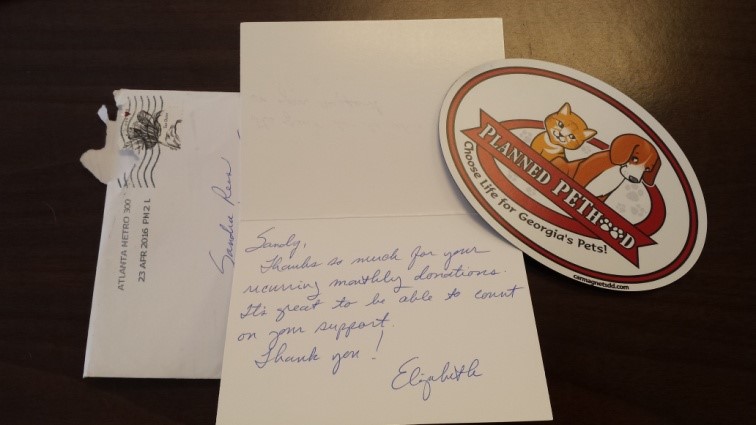 ATLANTA METRO 300
23 APR 2016 PM 2 L
Sandra
Sandy,
Thanks so much for your
recurring monthly donations.
It's great to be able to count
on your support.
Thank you!
Elizabeth
PLANNED PETHOOD
Choose Life for Georgia's Pets!
carmagnetsdd.com